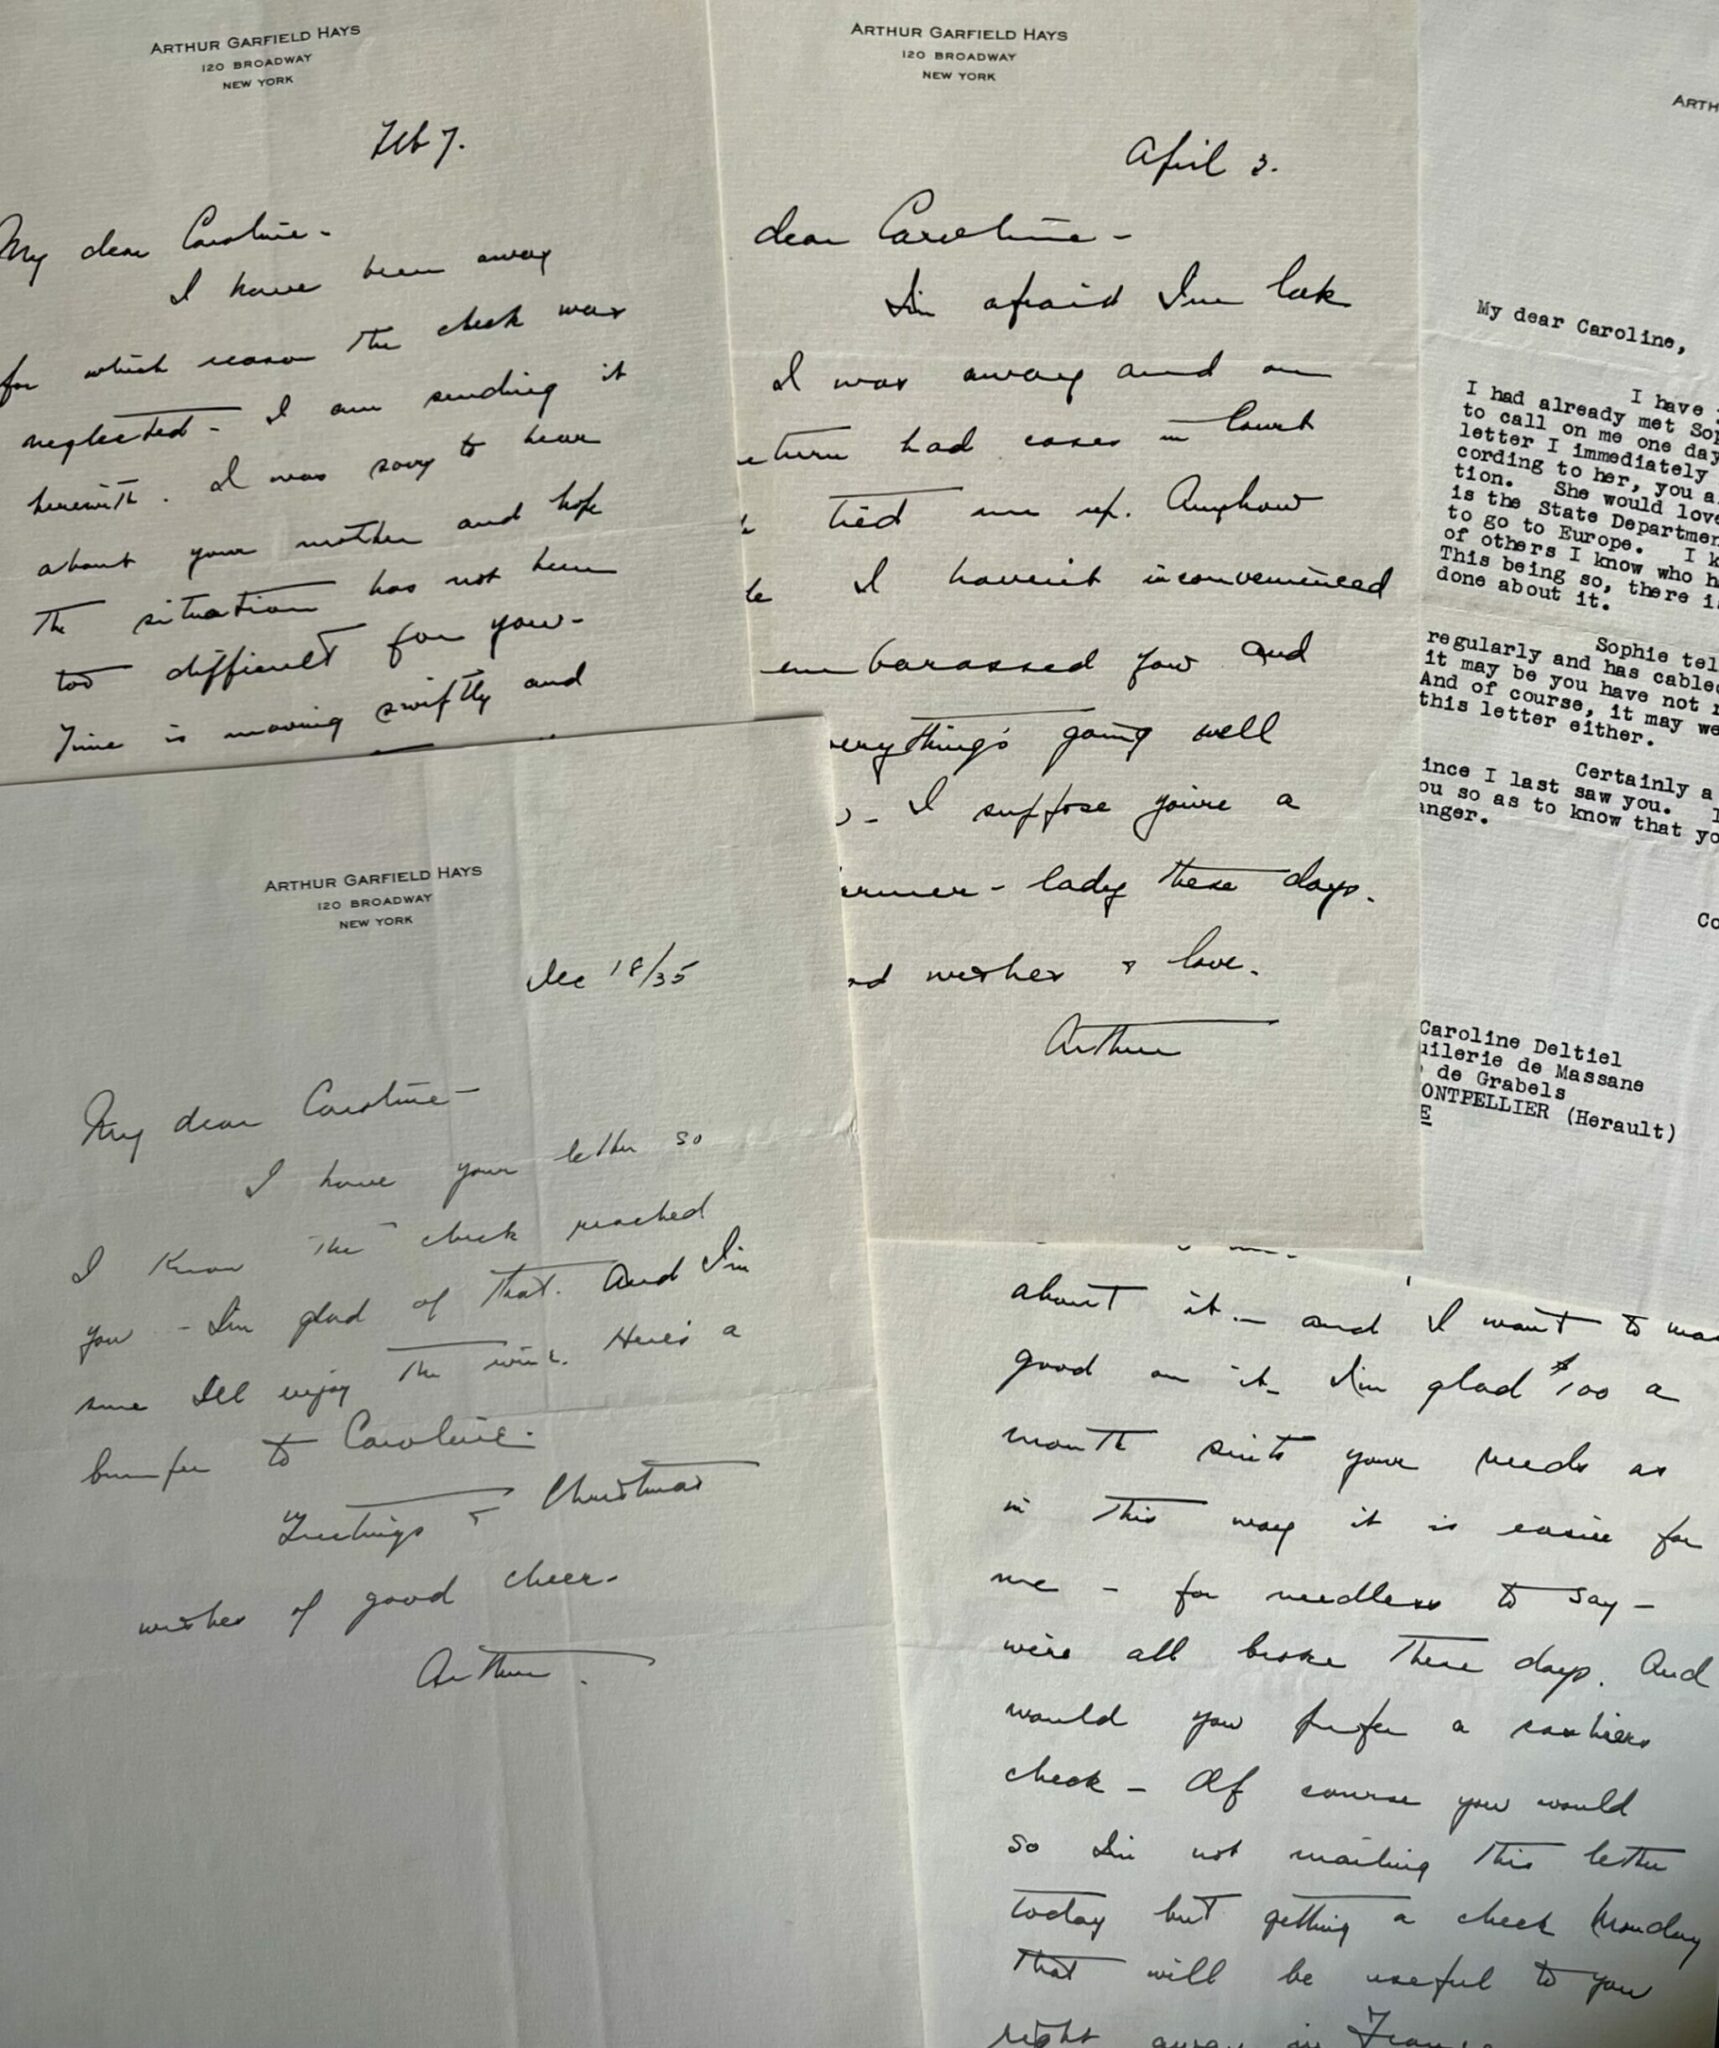 ARTHUR GARFIELD HAYS
120 BROADWAY
NEW YORK
Feb 7.
My dear Caroline -
I have been away
for which reason the check was
neglected - I am sending it
herewith. I was sorry to hear
about your mother and hope
the situation has not been
too difficult for you -
Time is moving swiftly and
ARTHUR GARFIELD HAYS
120 BROADWAY
NEW YORK
April 3.
dear Caroline -
I'm afraid I'm late
I was away and on
return had cases in Court
tied me up. Anyhow
I haven't inconvenienced
embarassed you and
everything's going well
- I suppose you're a
farmer-lady these days.
wishes & love.
Arthur
ARTH
My dear Caroline,
I have
I had already met Sop
to call on me one day
letter I immediately
cording to her, you a
tion. She would love
is the State Departmen
to go to Europe. I k
of others I know who h
This being so, there i
done about it.
Sophie tel
regularly and has cabled
it may be you have not r
And of course, it may we
this letter either.
Certainly a
ince I last saw you. I
ou so as to know that yo
anger.
Co
Caroline Deltiel
uilerie de Massane
de Grabels
ONTPELLIER (Herault)
E
ARTHUR GARFIELD HAYS
120 BROADWAY
NEW YORK
Dec 18/35
My dear Caroline -
I have your letter so
I know the check reached
you - I'm glad of that. And I'm
sure I'll enjoy the wine. Here's a
bumper to Caroline.
Greetings & Christmas
wishes of good cheer -
Arthur.
about it. - and I want to
good on it - I'm glad $100 a
month suits your needs as
in this way it is easier for
me - for needless to say -
we're all broke these days. And
would you prefer a cashiers
check - Of course you would
so I'm not mailing this letter
today but getting a check Monday
that will be useful to you
right away in